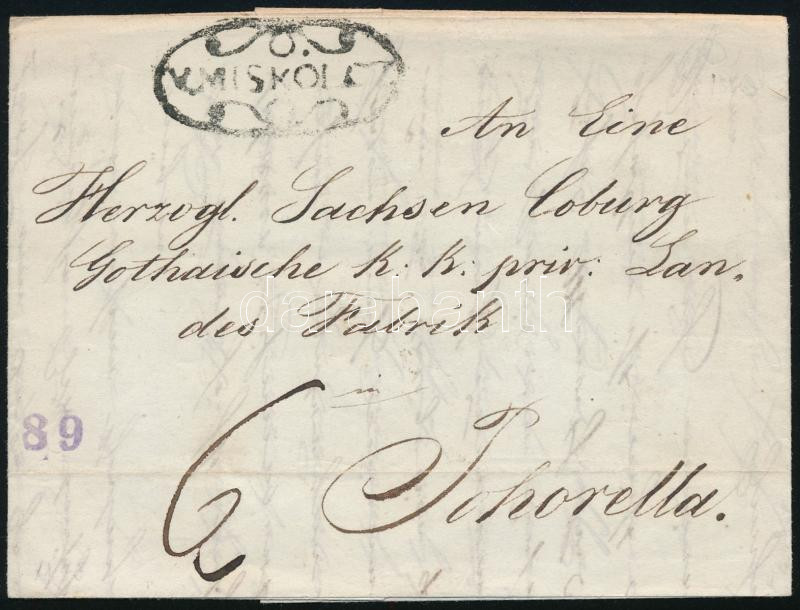 O.
V. MISKOLCZ
An Eine
Herzogl. Sachsen Coburg
Gothaische K: K: priv: Lan-
des Fabrik
in
Pohorella.
6
89
darabanth